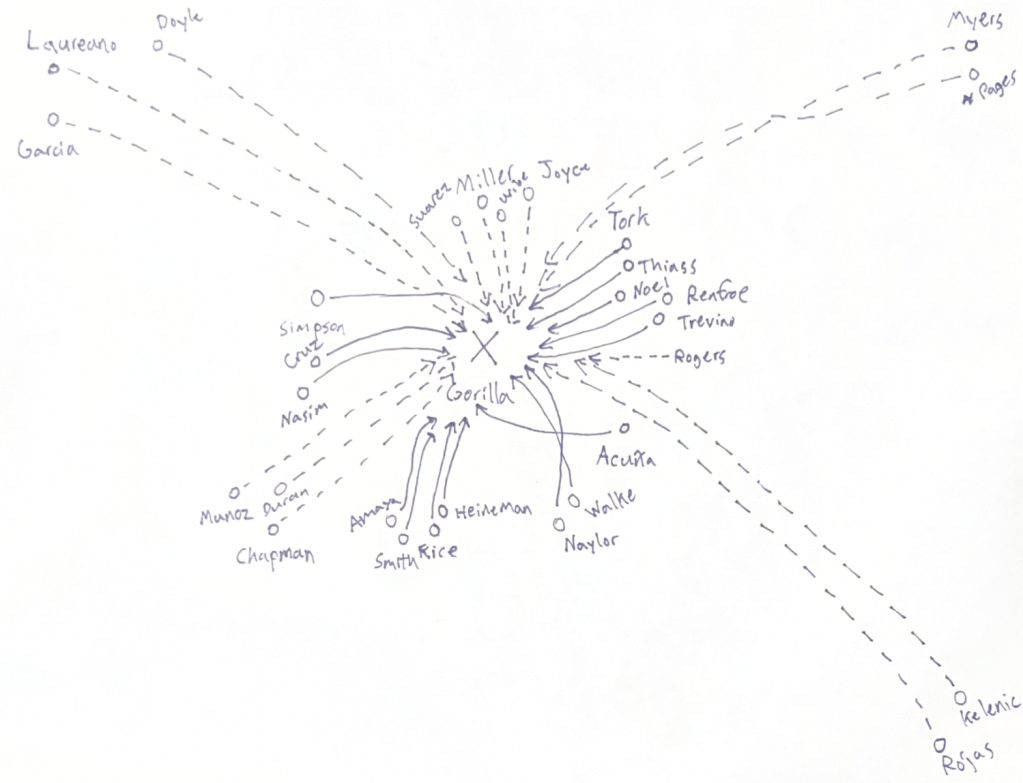 Doyle
Myers
Laureano
Pages
Garcia
Suarez
Miller
Joyce
Tork
Thiass
Noel
Renfroe
Trevino
Simpson
Cruz
X
Rogers
Nasim
Gorilla
Acuña
Munoz
Duran
Amaya
Heineman
Walke
Chapman
Smith
Rice
Naylor
Kelenic
Rojas